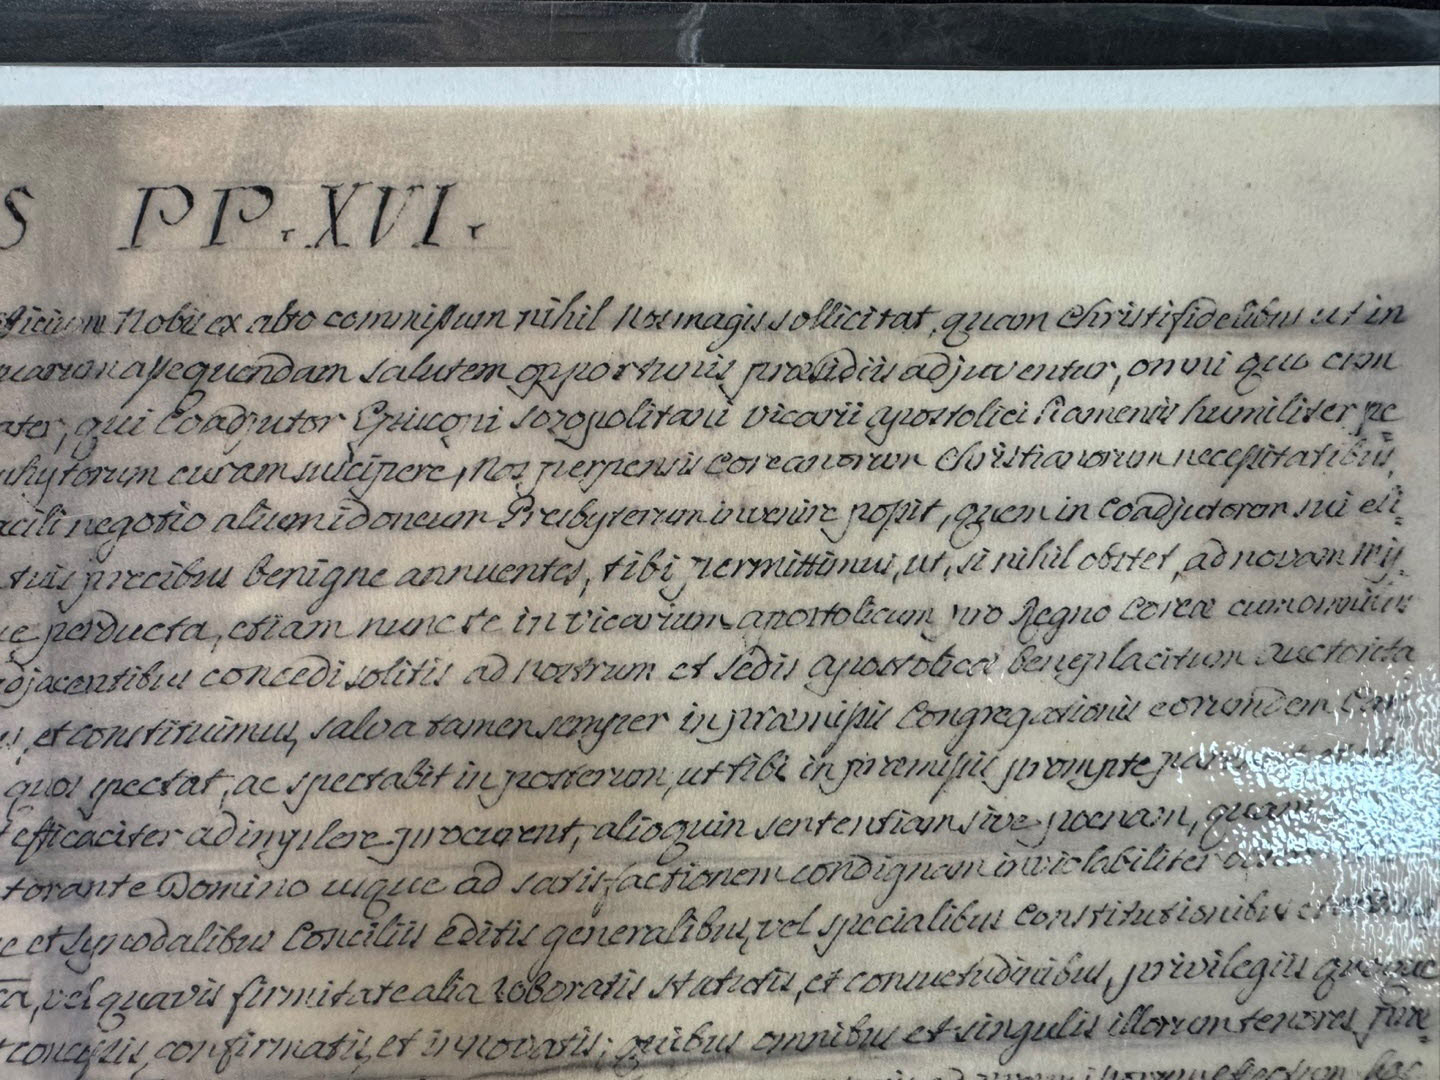 S PP. XVI.
Nobis ex alto commissum nihil Nos magis sollicitat, quam Christifidelibus ut in
assequendam salutem opportunis præsidiis adjuventur, omni quo cum
qui Coadjutor Episcopi Sozopolitani vicarii apostolici Siamensis humiliter pe=
phytorum curam suscipere, Nos perpensis Coreanorum Christianorum necessitatibus,
acili negotio alium idoneum Presbyterum invenire possit, quem in Coadjutorem sui eli=
tuis precibus benigne annuentes, tibi permittimus, ut, si nihil obstet, ad novam
perducta, etiam nunc te in vicarium apostolicum pro Regno Coreæ cum omnibus
adjacentibus concedi solitis ad Nostrum et Sedis apostolicæ beneplacitum auctorita
et constituimus, salva tamen semper in præmissis Congregationis eorumdem Car
quos spectat, ac spectabit in posterum, ut tibi in præmissis prompte
efficaciter adimplere procurent, alioquin sententiam sive poenam, quam
torante Domino usque ad satisfactionem condignam inviolabiliter
et Synodalibus Conciliis editis generalibus, vel specialibus Constitutionibus
vel quavis firmitate alia roboratis statutis, et consuetudinibus, privilegiis quoque
concessis, confirmatis, et innovatis; quibus omnibus et singulis illorum tenores